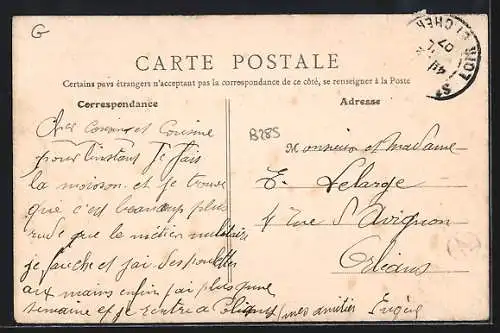 G
CARTE POSTALE
Certains pays étrangers n'acceptant pas la correspondance de ce côté, se renseigner à la Poste
Correspondance
Adresse
Cher Cousin et Cousine
pour l'instant Je fais
la moisson et je trouve
que c'est beaucoup plus
rude que le métier militaire
je fauche et j'ai des poulettes
aux mains enfin j'ai plus qu'une
semaine et je rentre a
mes amitiés Eugène
B285
Monsieur et Madame
E. Lelarge
4 rue d'Avignon
Orléans
LOIR-ET-CHER
07